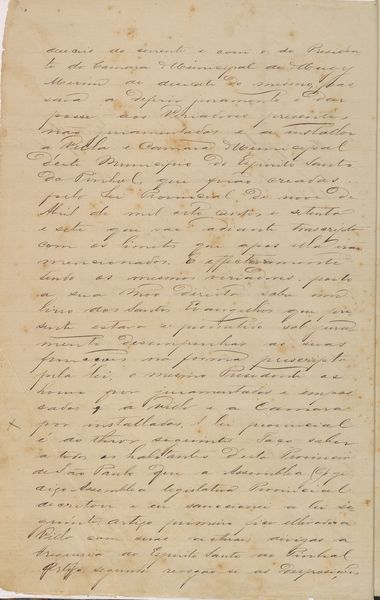 deseis do corrente e com o do Presiden
te da Camara Municipal de Mogy
Mirim de desesete do mesmo, pas
sava a deferir juramento e dar
posse aos Veriadores presentes
não juramentados e a installar
a Villa e Camara Municipal
deste Municipio do Espirito Santo
do Pinhal, que forão creadas
pela Lei Provincial de nove de
Abril de mil oito centos e setenta
e sete que vai adiante transcripta
com os limites que apos ella vão
mencionados. E effectivamente
tendo os mesmos veriadores posto
a sua mão direita sobre um
livro dos Santos Evangelhos que pre
sente estava e promettido sob jura
mento desempenhar as suas
funcções na forma prescripta
pela lei, o mesmo Presidente os
houve por juramentados e empos
sados, e a Villa e a Camara
por installadas. A lei provincial
é do theor seguinte: Faço saber
a todos os habitantes desta Provincia
de São Paulo que a Assembléa
digo Assembléa legislativa Provincial
decretou e eu sanccionei a lei se
guinte. Artigo primeiro fica elevada a
Villa com suas actuaes divizas a
freguezia do Espirito Santo do Pinhal
Artigo segundo revogão se as disposições